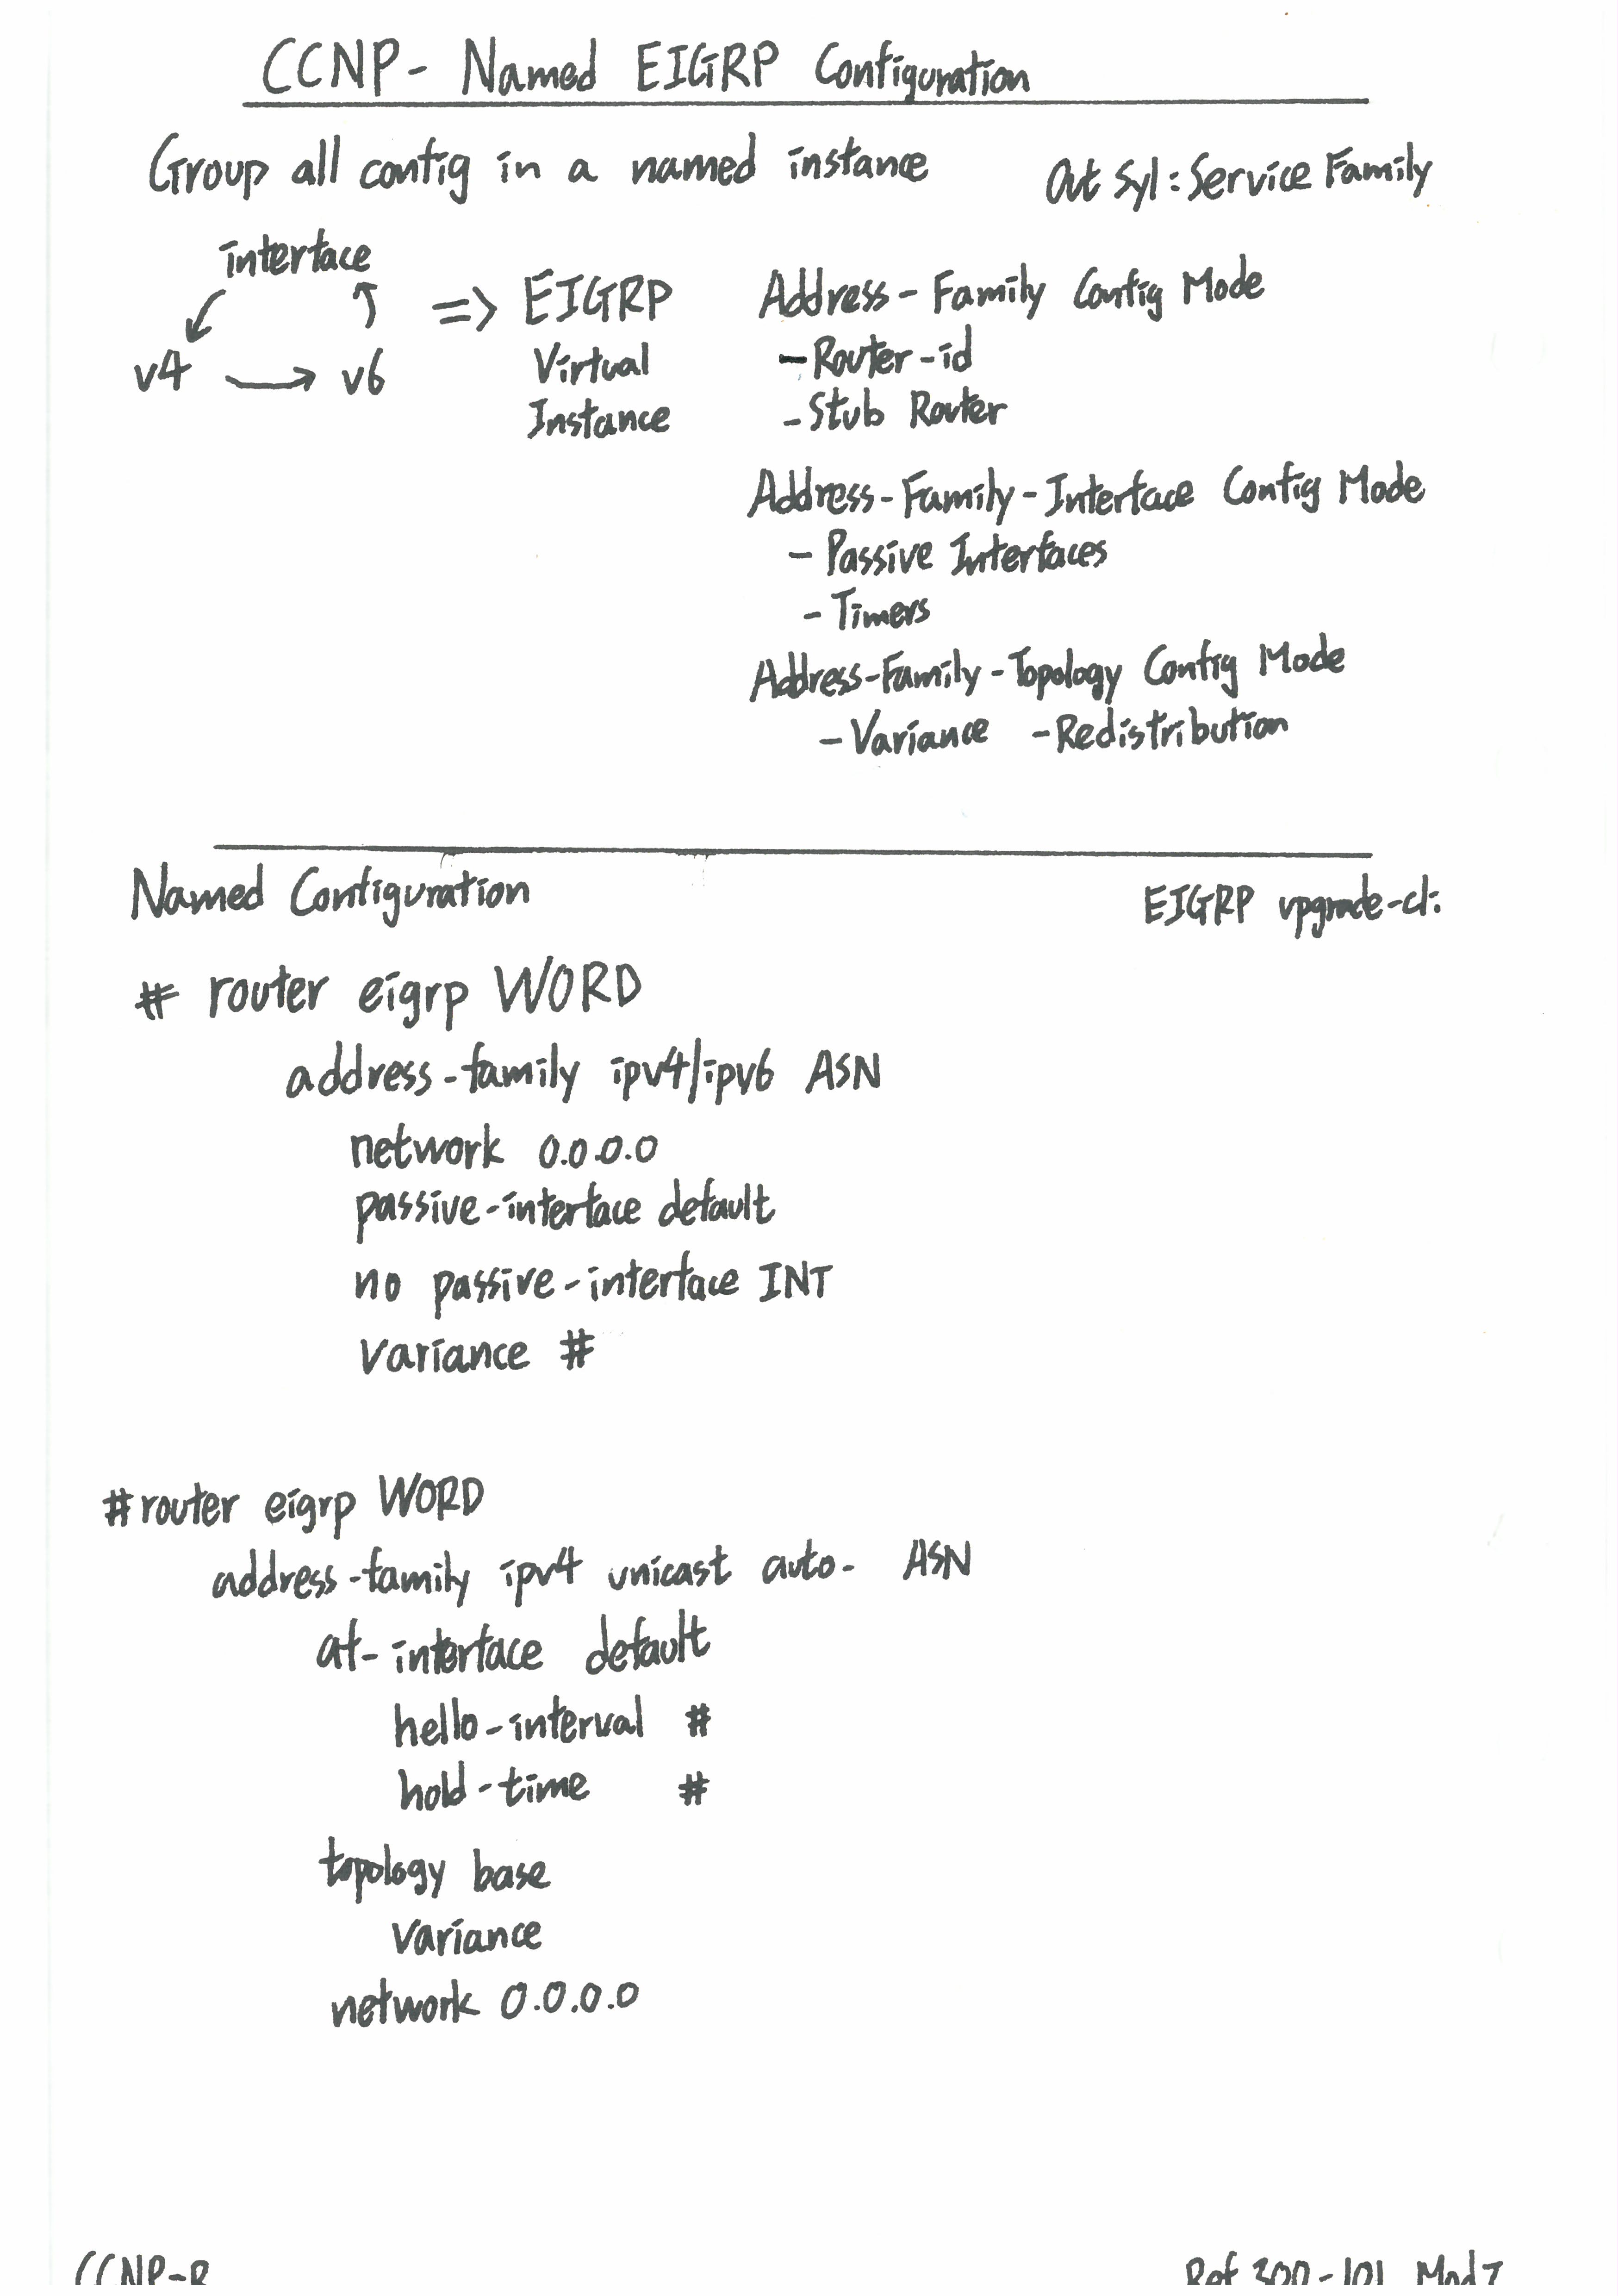 CCNP - Named EIGRP Configuration
Group all config in a named instance
Out Syl : Service Family
interface
v4 → v6
=> EIGRP
Virtual
Instance
Address - Family Config Mode
- Router-id
- Stub Router
Address - Family - Interface Config Mode
- Passive Interfaces
- Timers
Address-Family-Topology Config Mode
- Variance - Redistribution
Named Configuration
EIGRP upgrade-cli
# router eigrp WORD
address-family ipv4/ipv6 ASN
network 0.0.0.0
passive-interface default
no passive-interface INT
variance #
#router eigrp WORD
address-family ipv4 unicast auto- ASN
af-interface default
hello-interval #
hold-time #
topology base
variance
network 0.0.0.0
CCNP-R
Ref 300-101 Mod 7